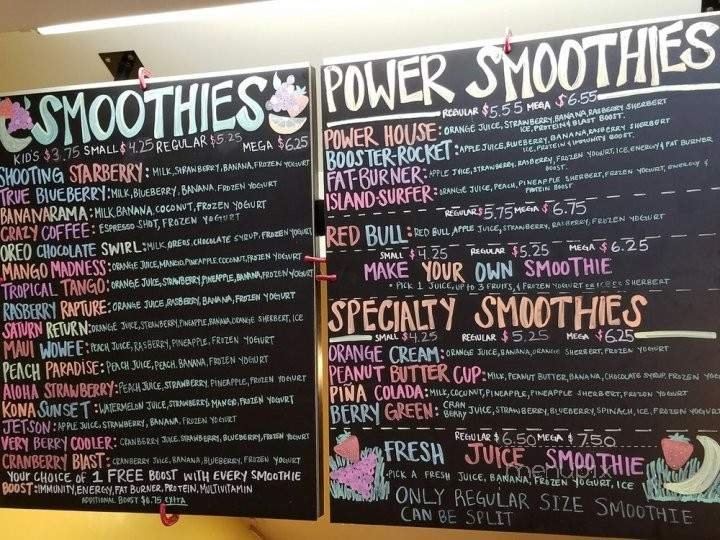 SMOOTHIES
KIDS $3.75 SMALL $4.25 REGULAR $5.25 MEGA $6.25
SHOOTING STARBERRY: MILK, STRAWBERRY, BANANA, FROZEN YOGURT
TRUE BLUEBERRY: MILK, BLUEBERRY, BANANA, FROZEN YOGURT
BANANARAMA: MILK, BANANA, COCONUT, FROZEN YOGURT
CRAZY COFFEE: ESPRESSO SHOT, FROZEN YOGURT
OREO CHOCOLATE SWIRL: MILK, OREOS, CHOCOLATE SYRUP, FROZEN YOGURT
MANGO MADNESS: ORANGE JUICE, MANGO, PINEAPPLE, COCONUT, FROZEN YOGURT
TROPICAL TANGO: ORANGE JUICE, STRAWBERRY, PINEAPPLE, BANANA, FROZEN YOGURT
RASBERRY RAPTURE: ORANGE JUICE, RASBERRY, BANANA, FROZEN YOGURT
SATURN RETURN: ORANGE JUICE, STRAWBERRY, PINEAPPLE, BANANA, ORANGE SHERBERT, ICE
MAUI WOWEE: PEACH JUICE, RASPBERRY, PINEAPPLE, FROZEN YOGURT
PEACH PARADISE: PEACH JUICE, PEACH, BANANA, FROZEN YOGURT
ALOHA STRAWBERRY: PEACH JUICE, STRAWBERRY, PINEAPPLE, FROZEN YOGURT
KONA SUNSET: WATERMELON JUICE, STRAWBERRY, MANGO, FROZEN YOGURT
JETSON: APPLE JUICE, STRAWBERRY, BANANA, FROZEN YOGURT
VERY BERRY COOLER: CRANBERRY JUICE, STRAWBERRY, BLUEBERRY, FROZEN YOGURT
CRANBERRY BLAST: CRANBERRY JUICE, BANANA, BLUEBERRY, FROZEN YOGURT
YOUR CHOICE OF 1 FREE BOOST WITH EVERY SMOOTHIE
BOOST: IMMUNITY, ENERGY, FAT BURNER, PROTEIN, MULTIVITAMIN
ADDITIONAL BOOST $0.75 EXTRA
POWER SMOOTHIES
REGULAR $5.55 MEGA $6.55
POWER HOUSE: ORANGE JUICE, STRAWBERRY, BANANA, RASBERRY SHERBERT
ICE, PROTEIN & BLAST BOOST.
BOOSTER-ROCKET: APPLE JUICE, BLUEBERRY, BANANA, RASPBERRY SHERBERT
ICE, PROTEIN & IMMUNITY BOOST.
FAT-BURNER: APPLE JUICE, STRAWBERRY, RASBERRY, FROZEN YOGURT, ICE, ENERGY & FAT BURNER
BOOST.
ISLAND-SURFER: ORANGE JUICE, PEACH, PINEAPPLE SHERBERT, FROZEN YOGURT, ENERGY &
PROTEIN BOOST
REGULAR $5.75 MEGA $6.75
RED BULL: RED BULL, APPLE JUICE, STRAWBERRY, RASPBERRY, FROZEN YOGURT
SMALL $4.25 REGULAR $5.25 MEGA $6.25
MAKE YOUR OWN SMOOTHIE
• PICK 1 JUICE, UP TO 3 FRUITS, & FROZEN YOGURT SHERBERT
SPECIALTY SMOOTHIES
SMALL $4.25 REGULAR $5.25 MEGA $6.25
ORANGE CREAM: ORANGE JUICE, BANANA, ORANGE SHERBERT, FROZEN YOGURT
PEANUT BUTTER CUP: MILK, PEANUT BUTTER, BANANA, CHOCOLATE SYRUP, FROZEN YOG
PIÑA COLADA: MILK, COCONUT, PINEAPPLE, PINEAPPLE SHERBERT, FROZEN YOGURT
BERRY GREEN: CRAN BERRY JUICE, STRAWBERRY, BLUEBERRY, SPINACH, ICE, FROZEN YOGUR
REGULAR $6.50 MEGA $7.50
FRESH JUICE SMOOTHIE
PICK A FRESH JUICE, BANANA, FROZEN YOGURT, ICE
ONLY REGULAR SIZE SMOOTHIE
CAN BE SPLIT